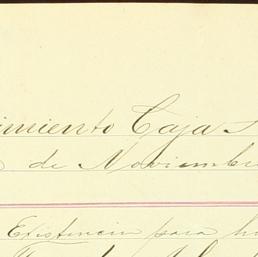 imiento Caja
de Noviembr
Existencia para h